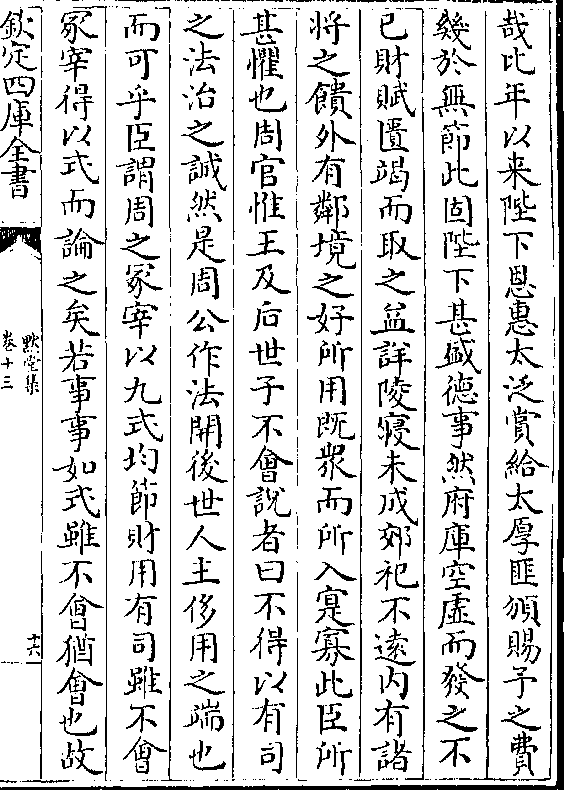 哉比年以来陛下恩惠太泛賞給太厚匪頒賜予之費
幾於無節此固陛下甚盛德事然府庫空虛而發之不
已財賦匱竭而取之益詳陵寢未成郊祀不遠内有諸
将之饋外有鄰境之好所用既衆而所入寔寡此臣所
甚懼也周官惟王及后世子不會說者曰不得以有司
之法治之誠然是周公作法開後世人主侈用之端也
而可乎臣謂周之冢宰以九式均節財用有司雖不會
冢宰得以式而論之矣若事事如式雖不會猶會也故
欽定四庫全書
默堂集
卷十三
十六